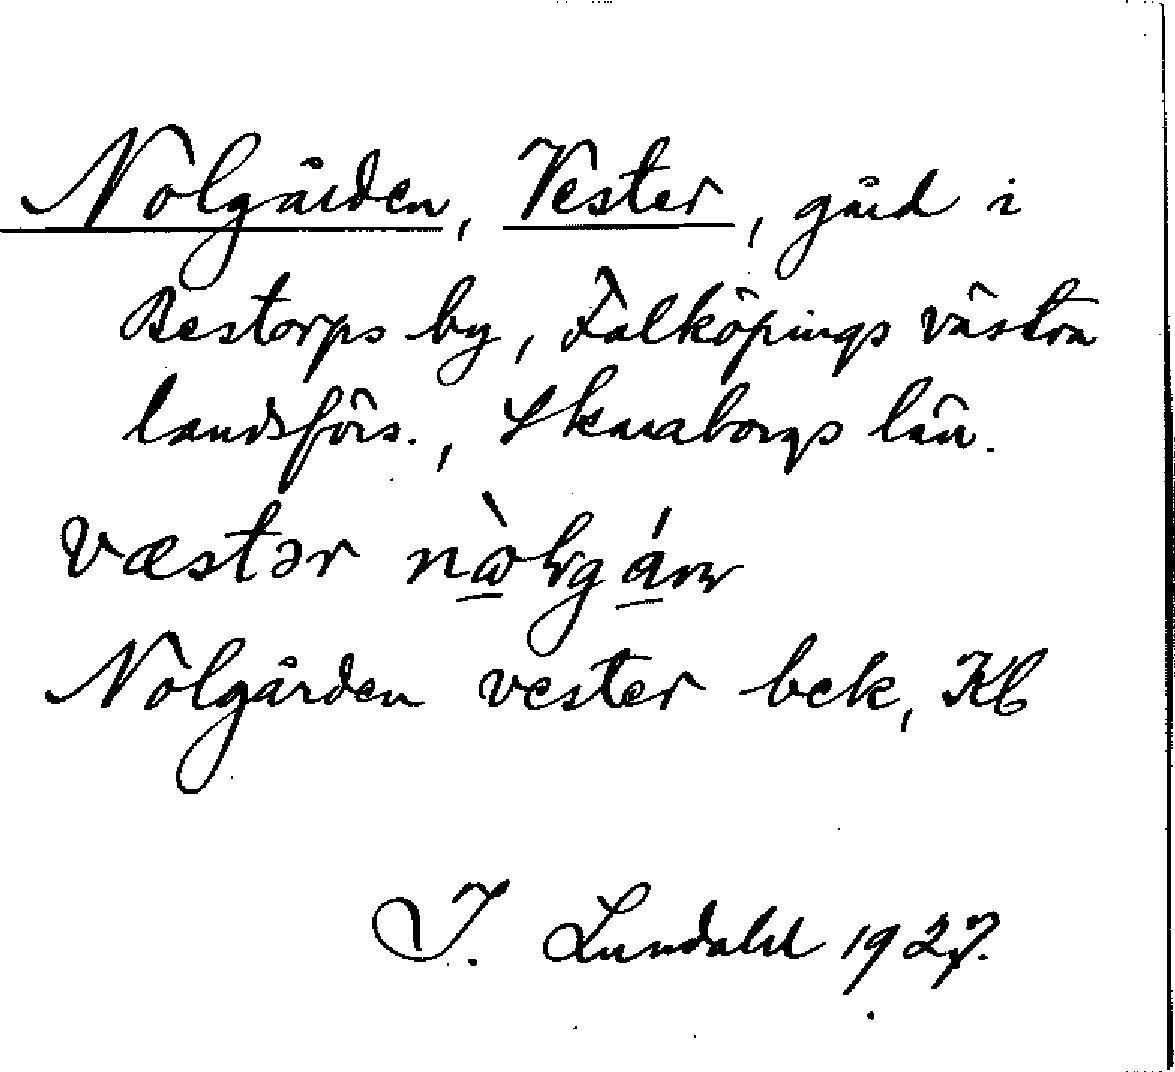 Nolgården, Vester, gård i
Bestorps by, Falköpings västra
landsförs., Skaraborgs län.
væstər
Nolgården vester bek, Kb
I. Lundahl 1927.